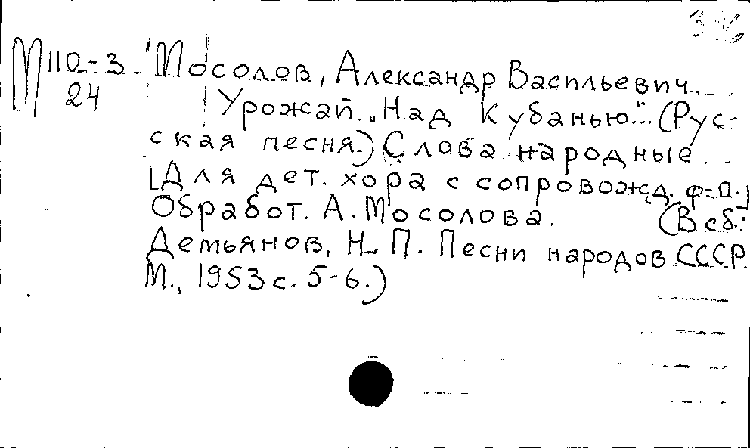 М 110-3 Мосолов, Александр Васильевич.
24 Урожай. „Над Кубанью". (Рус-
ская песня.) Слова народные.
[Для дет. хора с сопровожд. ф-п.]
Обработ. А. Мосолова. (В сб.:
Демьянов, Н. П. Песни народов СССР.
М., 1953 с. 5-6.)